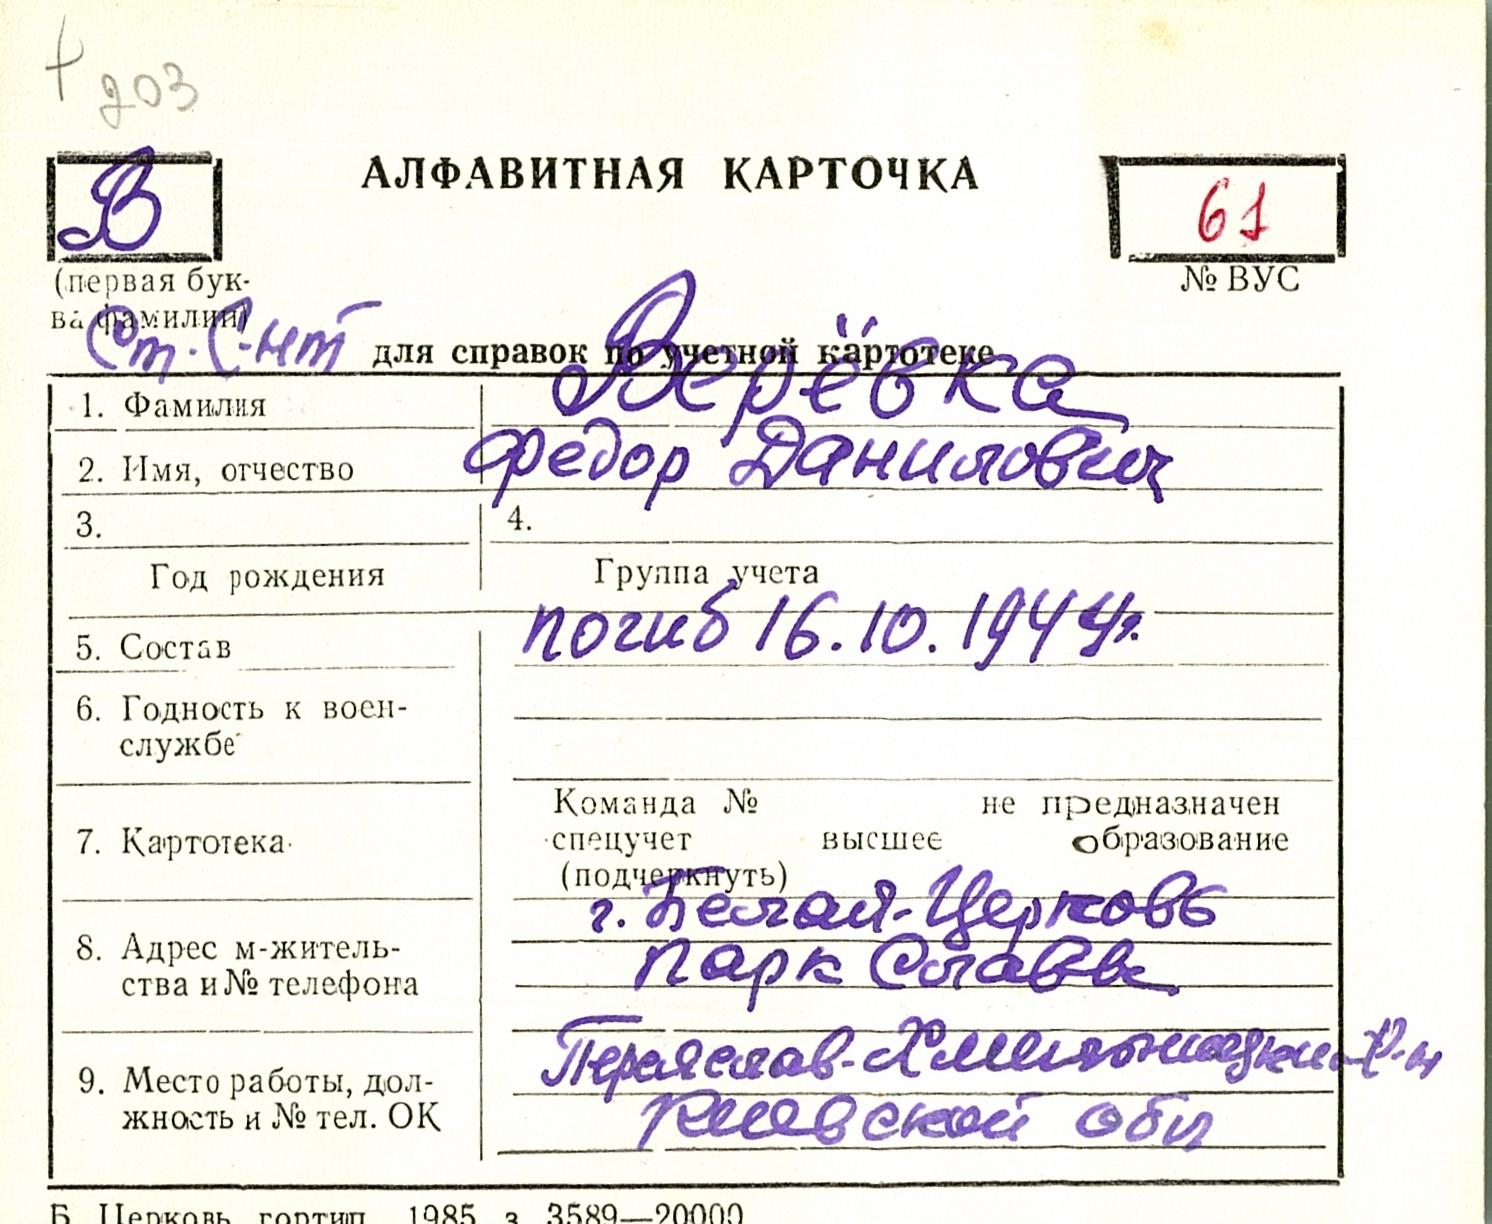 203
В
АЛФАВИТНАЯ КАРТОЧКА
61
(первая бук-
ва фамилии)
№ ВУС
Ст. С-нт
для справок по учетной картотеке
1. Фамилия Верёвка
2. Имя, отчество Федор Данилович
3. 4.
Год рождения Группа учета
погиб 16.10.1944г.
5. Состав
6. Годность к воен-
службе
7. Картотека
Команда № не предназначен
спецучет высшее образование
(подчеркнуть)
8. Адрес м-житель-
ства и № телефона
г. Белая-Церковь
парк Славы
9. Место работы, дол-
жность и № тел. ОК
Переяслав-Хмельницкий р-н
Киевской обл
Б. Церковь, гортип. 1985 з. 3589—20000